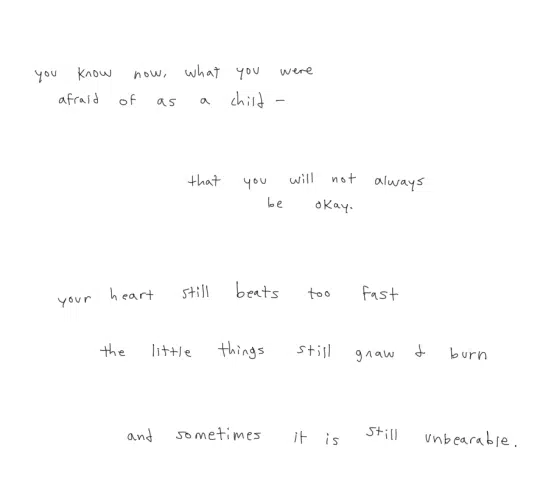 you know now, what you were
afraid of as a child –
that you will not always
be okay.
your heart still beats too fast
the little things still gnaw & burn
and sometimes it is still unbearable.